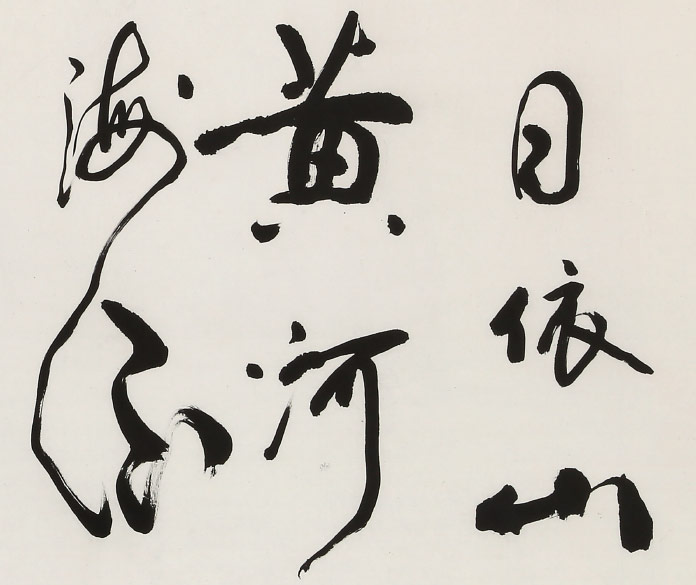 日依山
黄河
海流